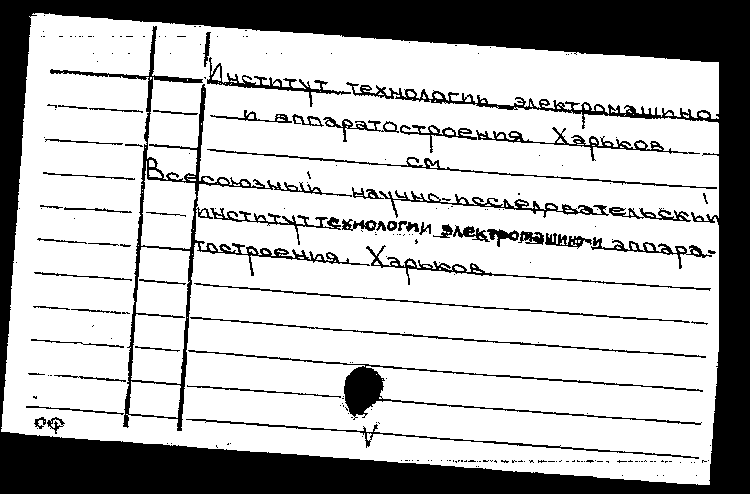 Институт технологии электромашино-
и аппаратостроения. Харьков.
см.
Всесоюзный научно-исследовательский
институт технологии электромашино- и аппара-
тостроения. Харьков.
оф
V